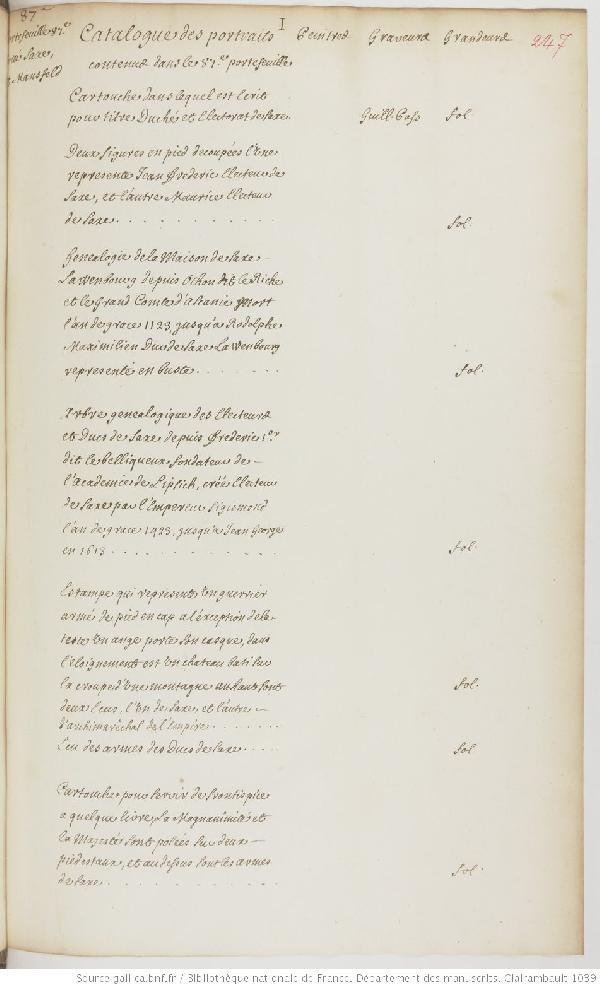 87e
portefeuille 87.e
Saxe,
Mansfeld
I
Catalogue des portraits Peintres Graveurs Grandeurs 247
contenus dans le 87.e portefeuille
Cartouche dans lequel est Ecrit
pour titre Duché et Electorat de Saxe. Guill. Foss fol.
Deux figures en pied decoupées l'une
represente Jean Frederic Electeur de
Saxe, et l'autre Maurice Electeur
de Saxe. . . . . . . . . . . fol.
Genealogie de la Maison de Saxe
Lawenbourg depuis Othon dit le Riche
et le Grand Comte d'Ascanie mort
l'an de grace 1123 jusqu'a Rodolphe
Maximilien Duc de Saxe Lawenbourg
representé en buste . . . . . . . fol.
Arbre genealogique des Electeurs
et Ducs de Saxe depuis Frederic 1.er
dit le belliqueux fondateur de
l'academie de Lipsich, créé Electeur
de Saxe par l'Empereur Sigismond
l'an de grace 1423, jusqu'a Jean George
en 1613 . . . . . . . . . . fol.
Estampe qui represente un guerrier
armé de pied en cap a l'éxception de la
teste un ange porte son casque, dans
l'eloignement est un chateau bati sur
la croupe d'une montagne au haut sont fol.
deux Ecus, l'un de Saxe, et l'autre
d'archimaréchal de l'Empire . . . . . .
Ecu des armes des Ducs de Saxe . . . . fol
Cartouche pour servir de frontispice
a quelque livre, La Magnanimité et
la Majesté sont posées sur deux
piedestaux, et au dessus sont les armes
de Saxe . . . . . . . . . . . fol.
Source gallica.bnf.fr / Bibliothèque nationale de France. Département des manuscrits. Clairambault 1039